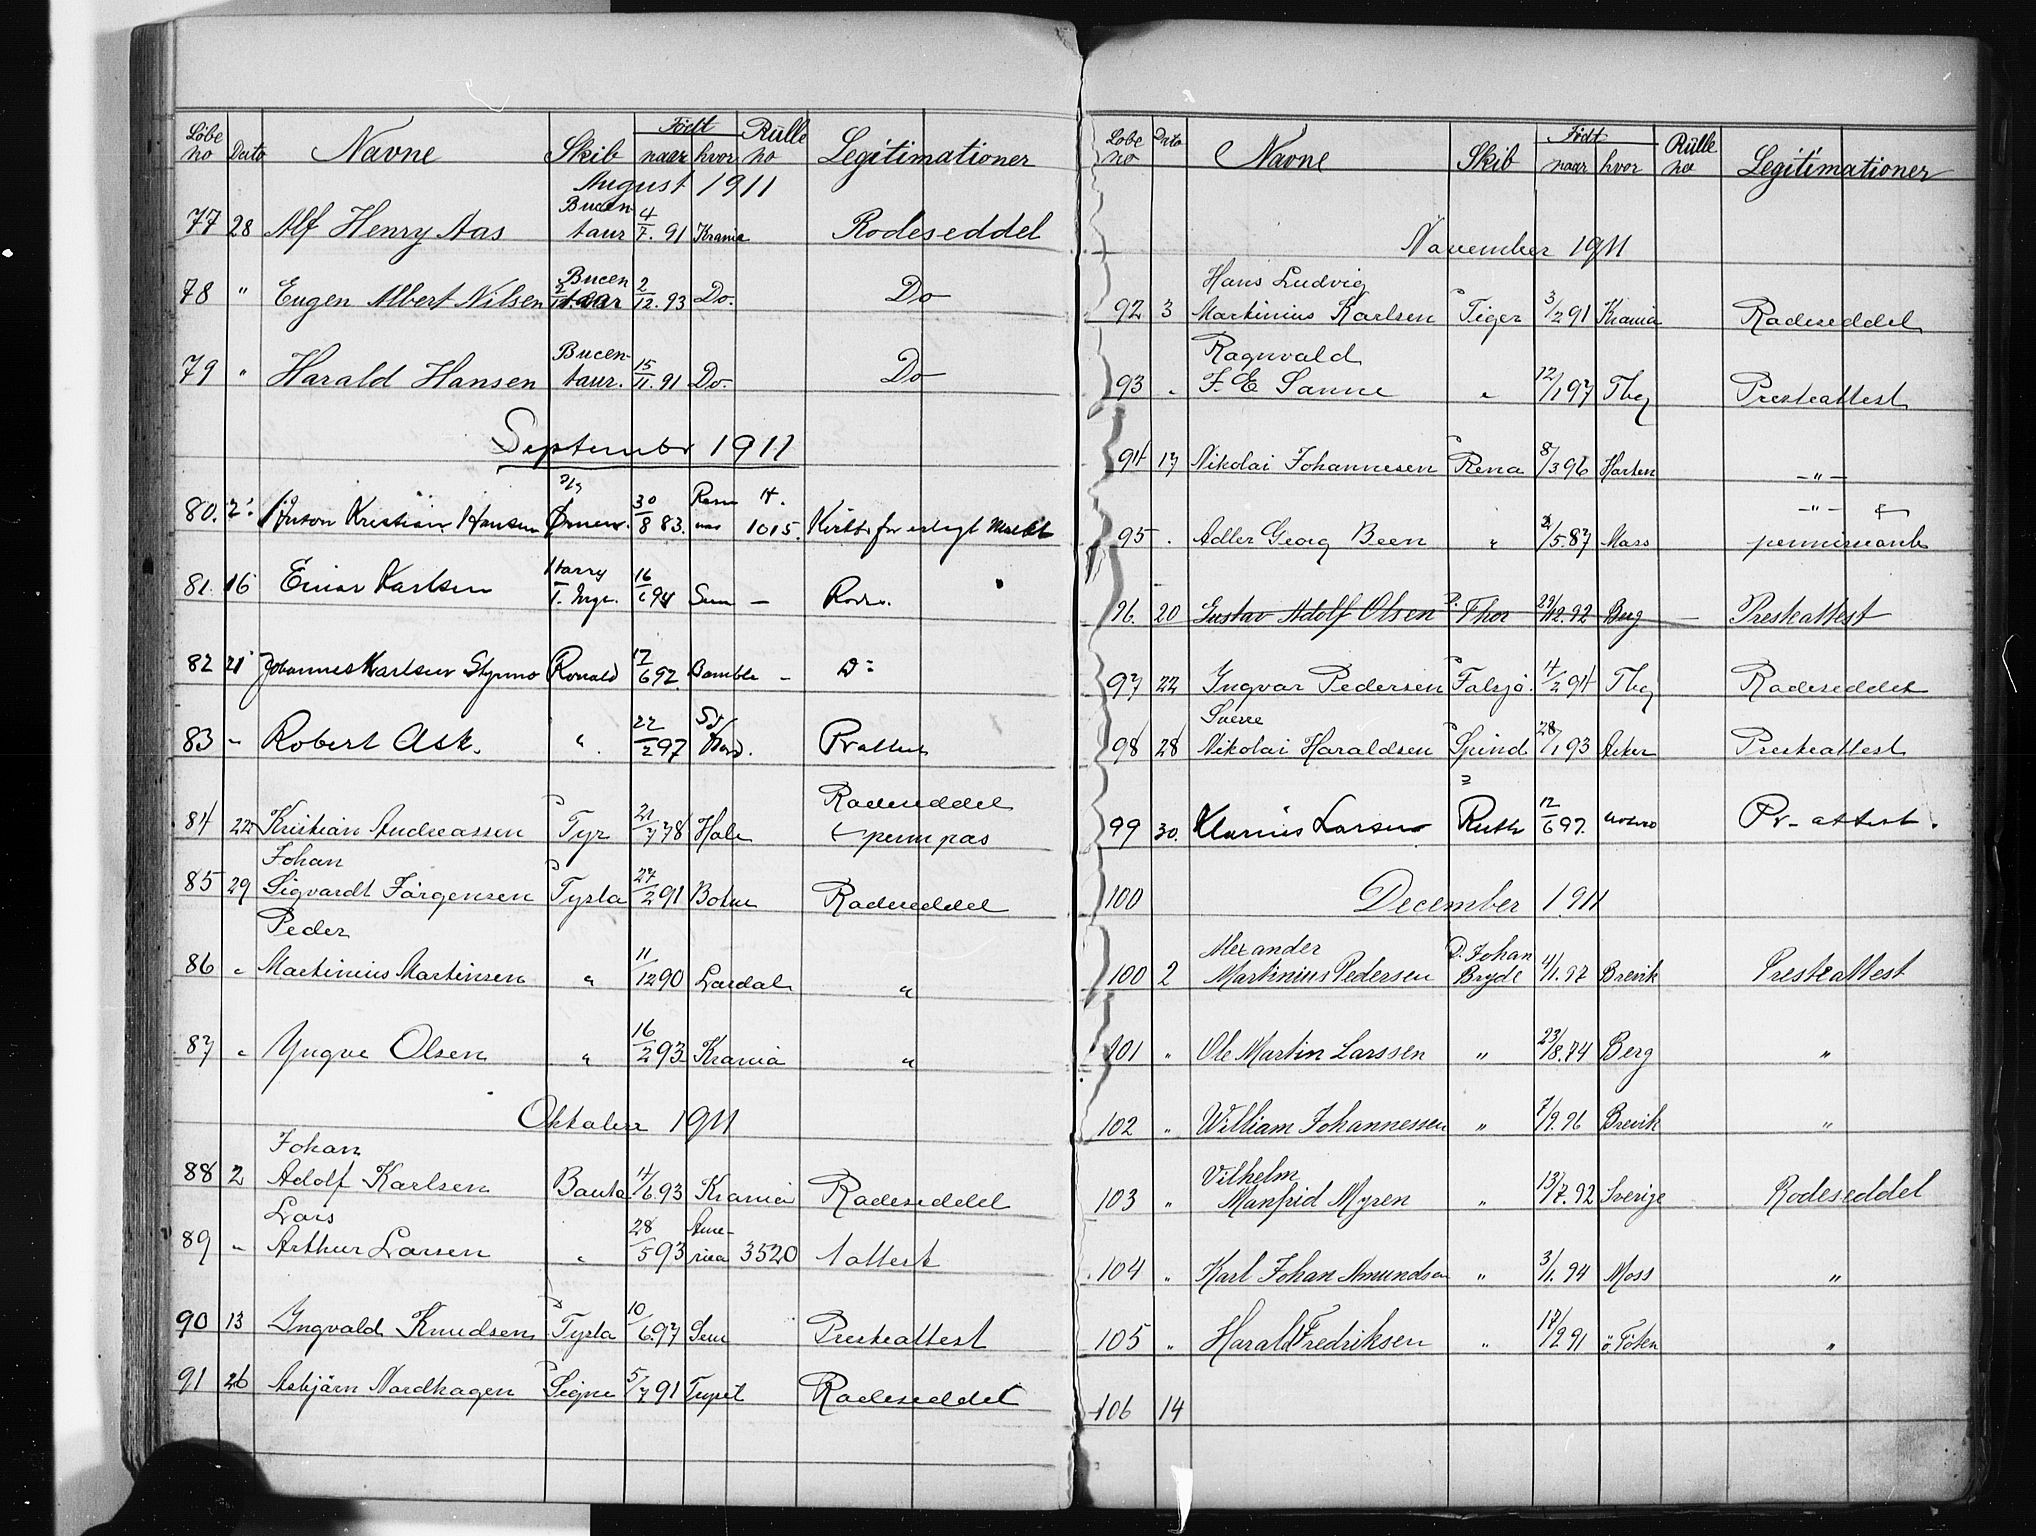 Løbe no Dato Navne Skib Født naar hvor Rülle no Legitimationer
August 1911
77 28 Alf Henry Aas Bucen-taur 4/7. 91 Krania Rodeseddel
78 " Eugen Albert Nilsen Bucen taur 2/12. 93 Do. Do
79 " Harald Hansen Bucen-taur. 15/11. 91 Do. Do
September 1911
80. 2. Anton Kristian Hansen Ørnen. 30/8 83. 1015.
81. 16 Einar Karlsen Harry 16/6 94 Sem — Rodes.
82 21 Johannes Karlsen Ronald 17/6 92. Bamble - Do
83 - Robert Ask. " 22/2 97 Pr attest
84 22 Kristian Andreassen D Tyr 21/7 78 Hole Rodeseddel + perm pas
Johan
85 29 Sigvardt Jörgensen D Tysla 27/2 91 Botne Rodeseddel
Peder
86 " Martinius Martinsen " 11/12 90 Lardal "
87 " Yngve Olsen " 16/2 93 Krania "
Oktober 1911
Johan
88 2 Adolf Karlsen Bauta 4/6. 93 Krania Rodeseddel
Lars
89 " Arthur Larsen " 28/5 93 Ame-rica 3520 1 attest
90 13 Ingvald Knudsen D Tysla 10/6. 97 Sem Presteattest
91 26 Asbjörn Nordhagen D Signe 5/7 91 Rodeseddel
Løbe no Dato Navne Skib Født naar hvor Rülle no Legitimationer
November 1911
Hans Ludvig
92 3 Martinius Karlsen D Tiger 3/2 91 Krania Rodeseddel
Ragnvald
93 " F. E Sanne " 12/1 97 Tbg Presteattest
94 17 Nikolai Johannesen D Rena 8/3 96 Horten - " -
- " - +
95 . Adler Georg Been " 2/5. 87 Moss
96. 20 Gustav Adolf Olsen D. Thor 29/12. 92 Berg — Presteattest
97 22 Ingvar Pedersen D Falsjö. 4/2 94 Tbg Rodeseddel
Sverre
98 28 Nikolai Haraldsen D Spind 28/1 93 Aker Presteattest
99 30. Klarius Larsen D Ruth 12/6 97. Pr- attest.
100 December 1911
Alexander D. Johan
100 2 Martinius Pedersen Bryde 4/1. 97 Brevik Presteattest
101 " Ole Martin Larssen " 23/8. 74 Berg "
102 " William Johannessen " 7/9. 96 Brevik "
Vilhelm
103 " Manfrid Myren " 13/7. 92 Sverige Rodeseddel
104 " Karl Johan Amundsen " 3/1. 94 Moss "
105 " Harald Fredriksen " 17/9 91 ö Toten "
106 14